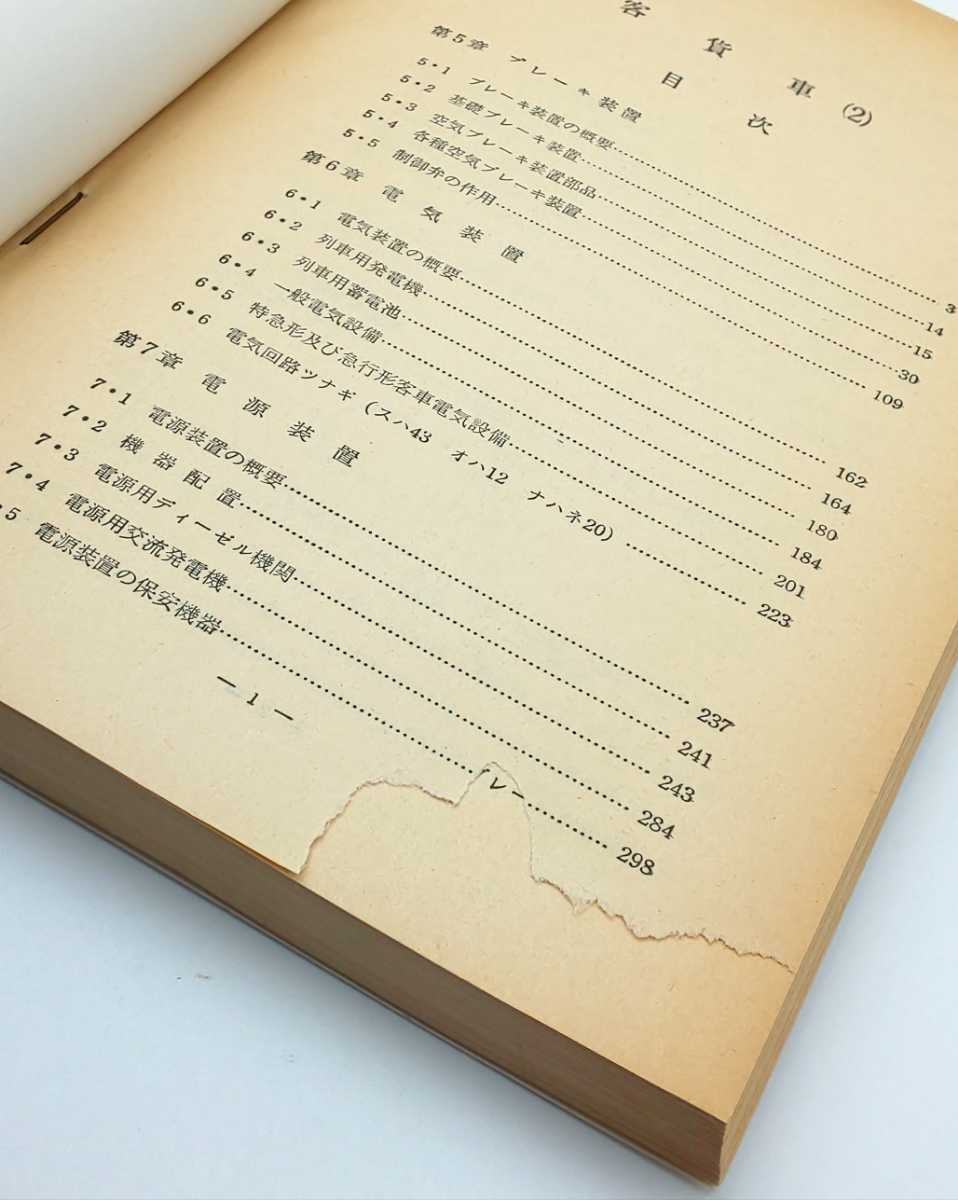 客貨車(2)
目次
第5章 ブレーキ装置
5・1 ブレーキ装置の概要……3
5・2 基礎ブレーキ装置……14
5・3 空気ブレーキ装置部品……15
5・4 各種空気ブレーキ装置……30
5・5 制御弁の作用……109
第6章 電気装置
6・1 電気装置の概要……162
6・2 列車用発電機……164
6・3 列車用蓄電池……180
6・4 一般電気設備……184
6・5 特急形及び急行形客車電気設備……201
6・6 電気回路ツナギ(スハ43 オハ12 ナハネ20)……223
第7章 電源装置
7・1 電源装置の概要……237
7・2 機器配置……241
7・3 電源用ディーゼル機関……243
7・4 電源用交流発電機……284
5 電源装置の保安機器……298
― 1 ―
レー